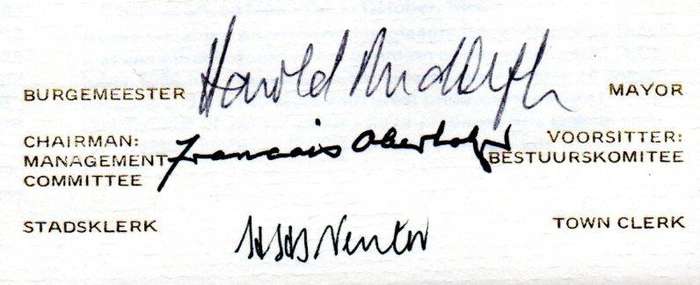 BURGEMEESTER Harold MAYOR
CHAIRMAN: VOORSITTER:
MANAGEMENT Francois Oberholzer BESTUURSKOMITEE
COMMITTEE
STADSKLERK Venter TOWN CLERK